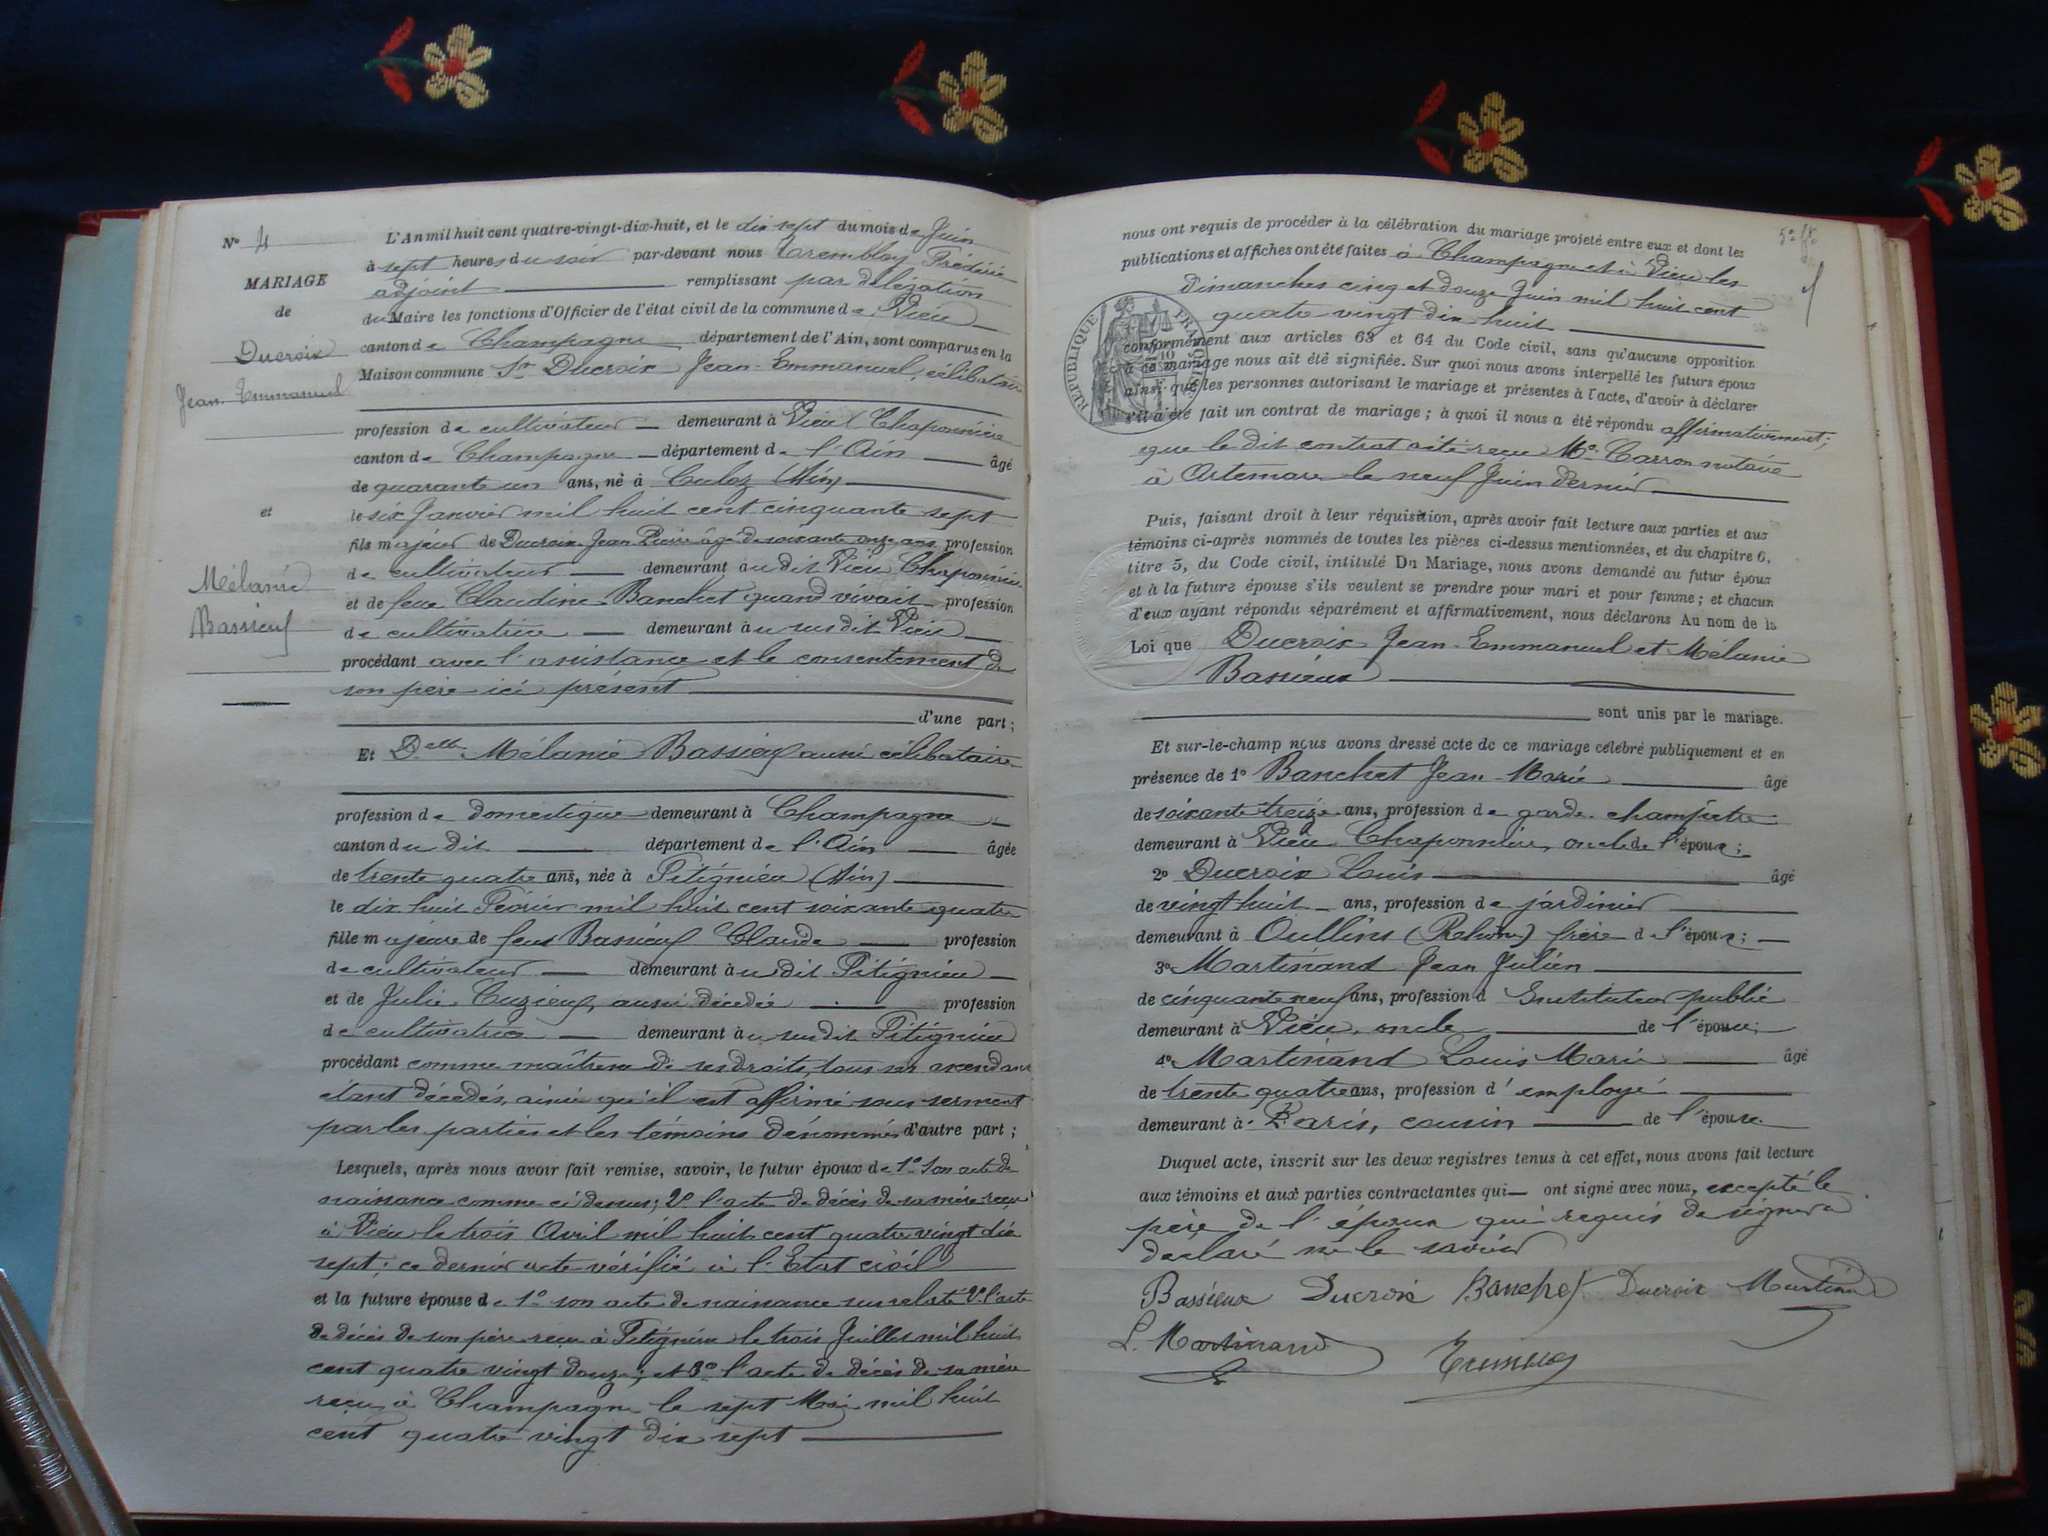 N° 4
MARIAGE
de
Ducroix
Jean-Emmanuel
et
Mélanie
Bassieux
L'An mil huit cent quatre-vingt-dix-huit, et le dix sept du mois de Juin
à sept heures du soir par-devant nous Frédéric
adjoint remplissant par délégation
du Maire les fonctions d'Officier de l'état civil de la commune de Vieu
canton de Champagne département de l'Ain, sont comparus en la
Maison commune Sr Ducroix Jean-Emmanuel, célibataire
profession de cultivateur demeurant à Vieu Chaponnière
canton de Champagne département de l'Ain âgé
de quarante un ans, né à Culoz (Ain)
le six Janvier mil huit cent cinquante sept
fils majeur de Ducroix Jean Pierre âgé de soixante onze ans profession
de cultivateur demeurant au dit Vieu Chaponnière
et de feue Claudine Banchet quand vivait profession
de cultivatrice demeurant au susdit Vieu
procédant avec l'assistance et le consentement de
son père ici présent
d'une part;
Et Delle Mélanie Bassieux aussi célibataire
profession de domestique demeurant à Champagne
canton du dit département de l'Ain âgée
de trente quatre ans, née à Pitignieu (Ain)
le dix huit Février mil huit cent soixante quatre
fille majeure de feu Bassieux Claude profession
de cultivateur demeurant au dit Pitignieu
et de Julie Cuzieux, aussi décédée profession
de cultivatrice demeurant au susdit Pitignieu
procédant comme maîtresse de ses droits, tous ses ascendants
étant décédés, ainsi qu'il est affirmé sous serment
par les parties et les témoins dénommés d'autre part;
Lesquels, après nous avoir fait remise, savoir, le futur époux de 1° son acte de
naissance comme ci dessus; 2° l'acte de décès de sa mère reçu
à Vieu le trois Avril mil huit cent quatre vingt dix
sept; ce dernier acte vérifié à l'Etat civil
et la future épouse de 1° son acte de naissance sus relaté 2° l'acte
de décès de son père reçu à Pitignieu le trois Juillet mil huit
cent quatre vingt douze; et 3° l'acte de décès de sa mère
reçu à Champagne le sept Mai mil huit
cent quatre vingt dix sept
nous ont requis de procéder à la célébration du mariage projeté entre eux et dont les
publications et affiches ont été faites à Champagne et à Vieu les
Dimanches cinq et douze Juin mil huit cent
quatre vingt dix huit
RÉPUBLIQUE FRANÇAISE
conformément aux articles 63 et 64 du Code civil, sans qu'aucune opposition
à ce mariage nous ait été signifiée. Sur quoi nous avons interpellé les futurs époux
ainsi que les personnes autorisant le mariage et présentes à l'acte, d'avoir à déclarer
s'il a été fait un contrat de mariage; à quoi il nous a été répondu affirmativement;
que le dit contrat a été reçu Me Carron notaire
à Artemare le neuf Juin dernier
Puis, faisant droit à leur réquisition, après avoir fait lecture aux parties et aux
témoins ci-après nommés de toutes les pièces ci-dessus mentionnées, et du chapitre 6,
titre 5, du Code civil, intitulé Du Mariage, nous avons demandé au futur époux
et à la future épouse s'ils veulent se prendre pour mari et pour femme; et chacun
d'eux ayant répondu séparément et affirmativement, nous déclarons Au nom de la
Loi que Ducroix Jean-Emmanuel et Mélanie
Bassieux
sont unis par le mariage.
Et sur-le-champ nous avons dressé acte de ce mariage célébré publiquement et en
présence de 1° Banchet Jean-Marie âgé
de soixante treize ans, profession de garde champêtre
demeurant à Vieu Chaponnière, oncle de l'époux;
2° Ducroix Louis âgé
de vingt huit ans, profession de jardinier
demeurant à Oullins (Rhône) frère de l'époux;
3° Martinand Jean Julien
de cinquante neuf ans, profession d Instituteur public
demeurant à Vieu, oncle de l'épouse;
4° Martinand Louis Marie âgé
de trente quatre ans, profession d'employé
demeurant à Paris, cousin de l'épouse
Duquel acte, inscrit sur les deux registres tenus à cet effet, nous avons fait lecture
aux témoins et aux parties contractantes qui ont signé avec nous, excepté le
père de l'époux qui requis de signer a
déclaré ne le savoir
Bassieux Ducroix Banchet Ducroix Martinand
L. Martinand